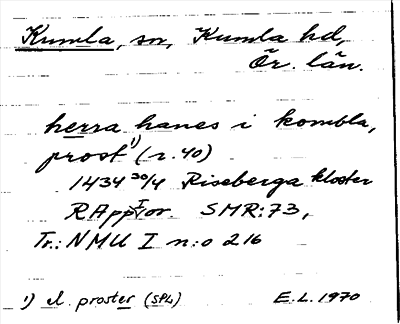 Kumla, sn, Kumla hd,
Ör. län.
herra hanes i kombla,
prost¹⁾ (r. 40)
1434 30/4 Riseberga kloster
RApp I or. SMR: 73,
Tr.: NMU I n:o 216
1) el. proster (SPL)
E.L. 1970